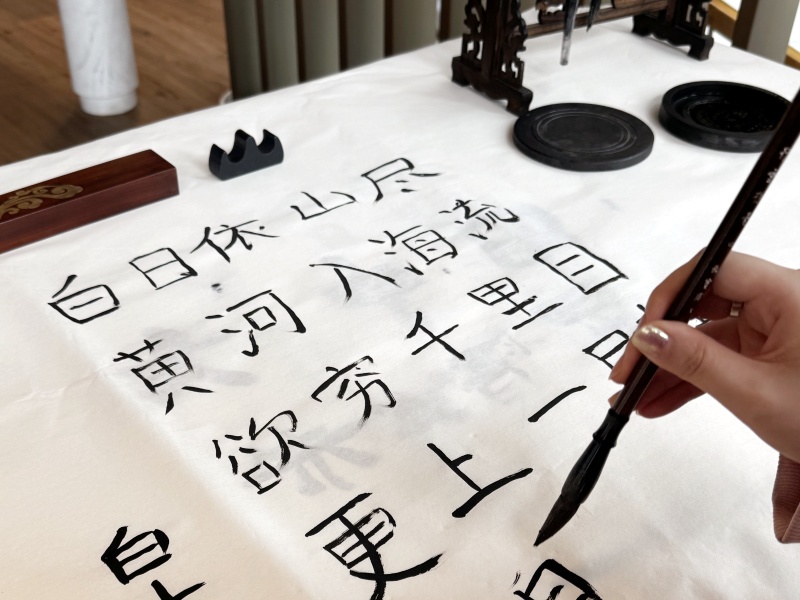 白日依山尽
黄河入海流
欲穷千里目
更上一